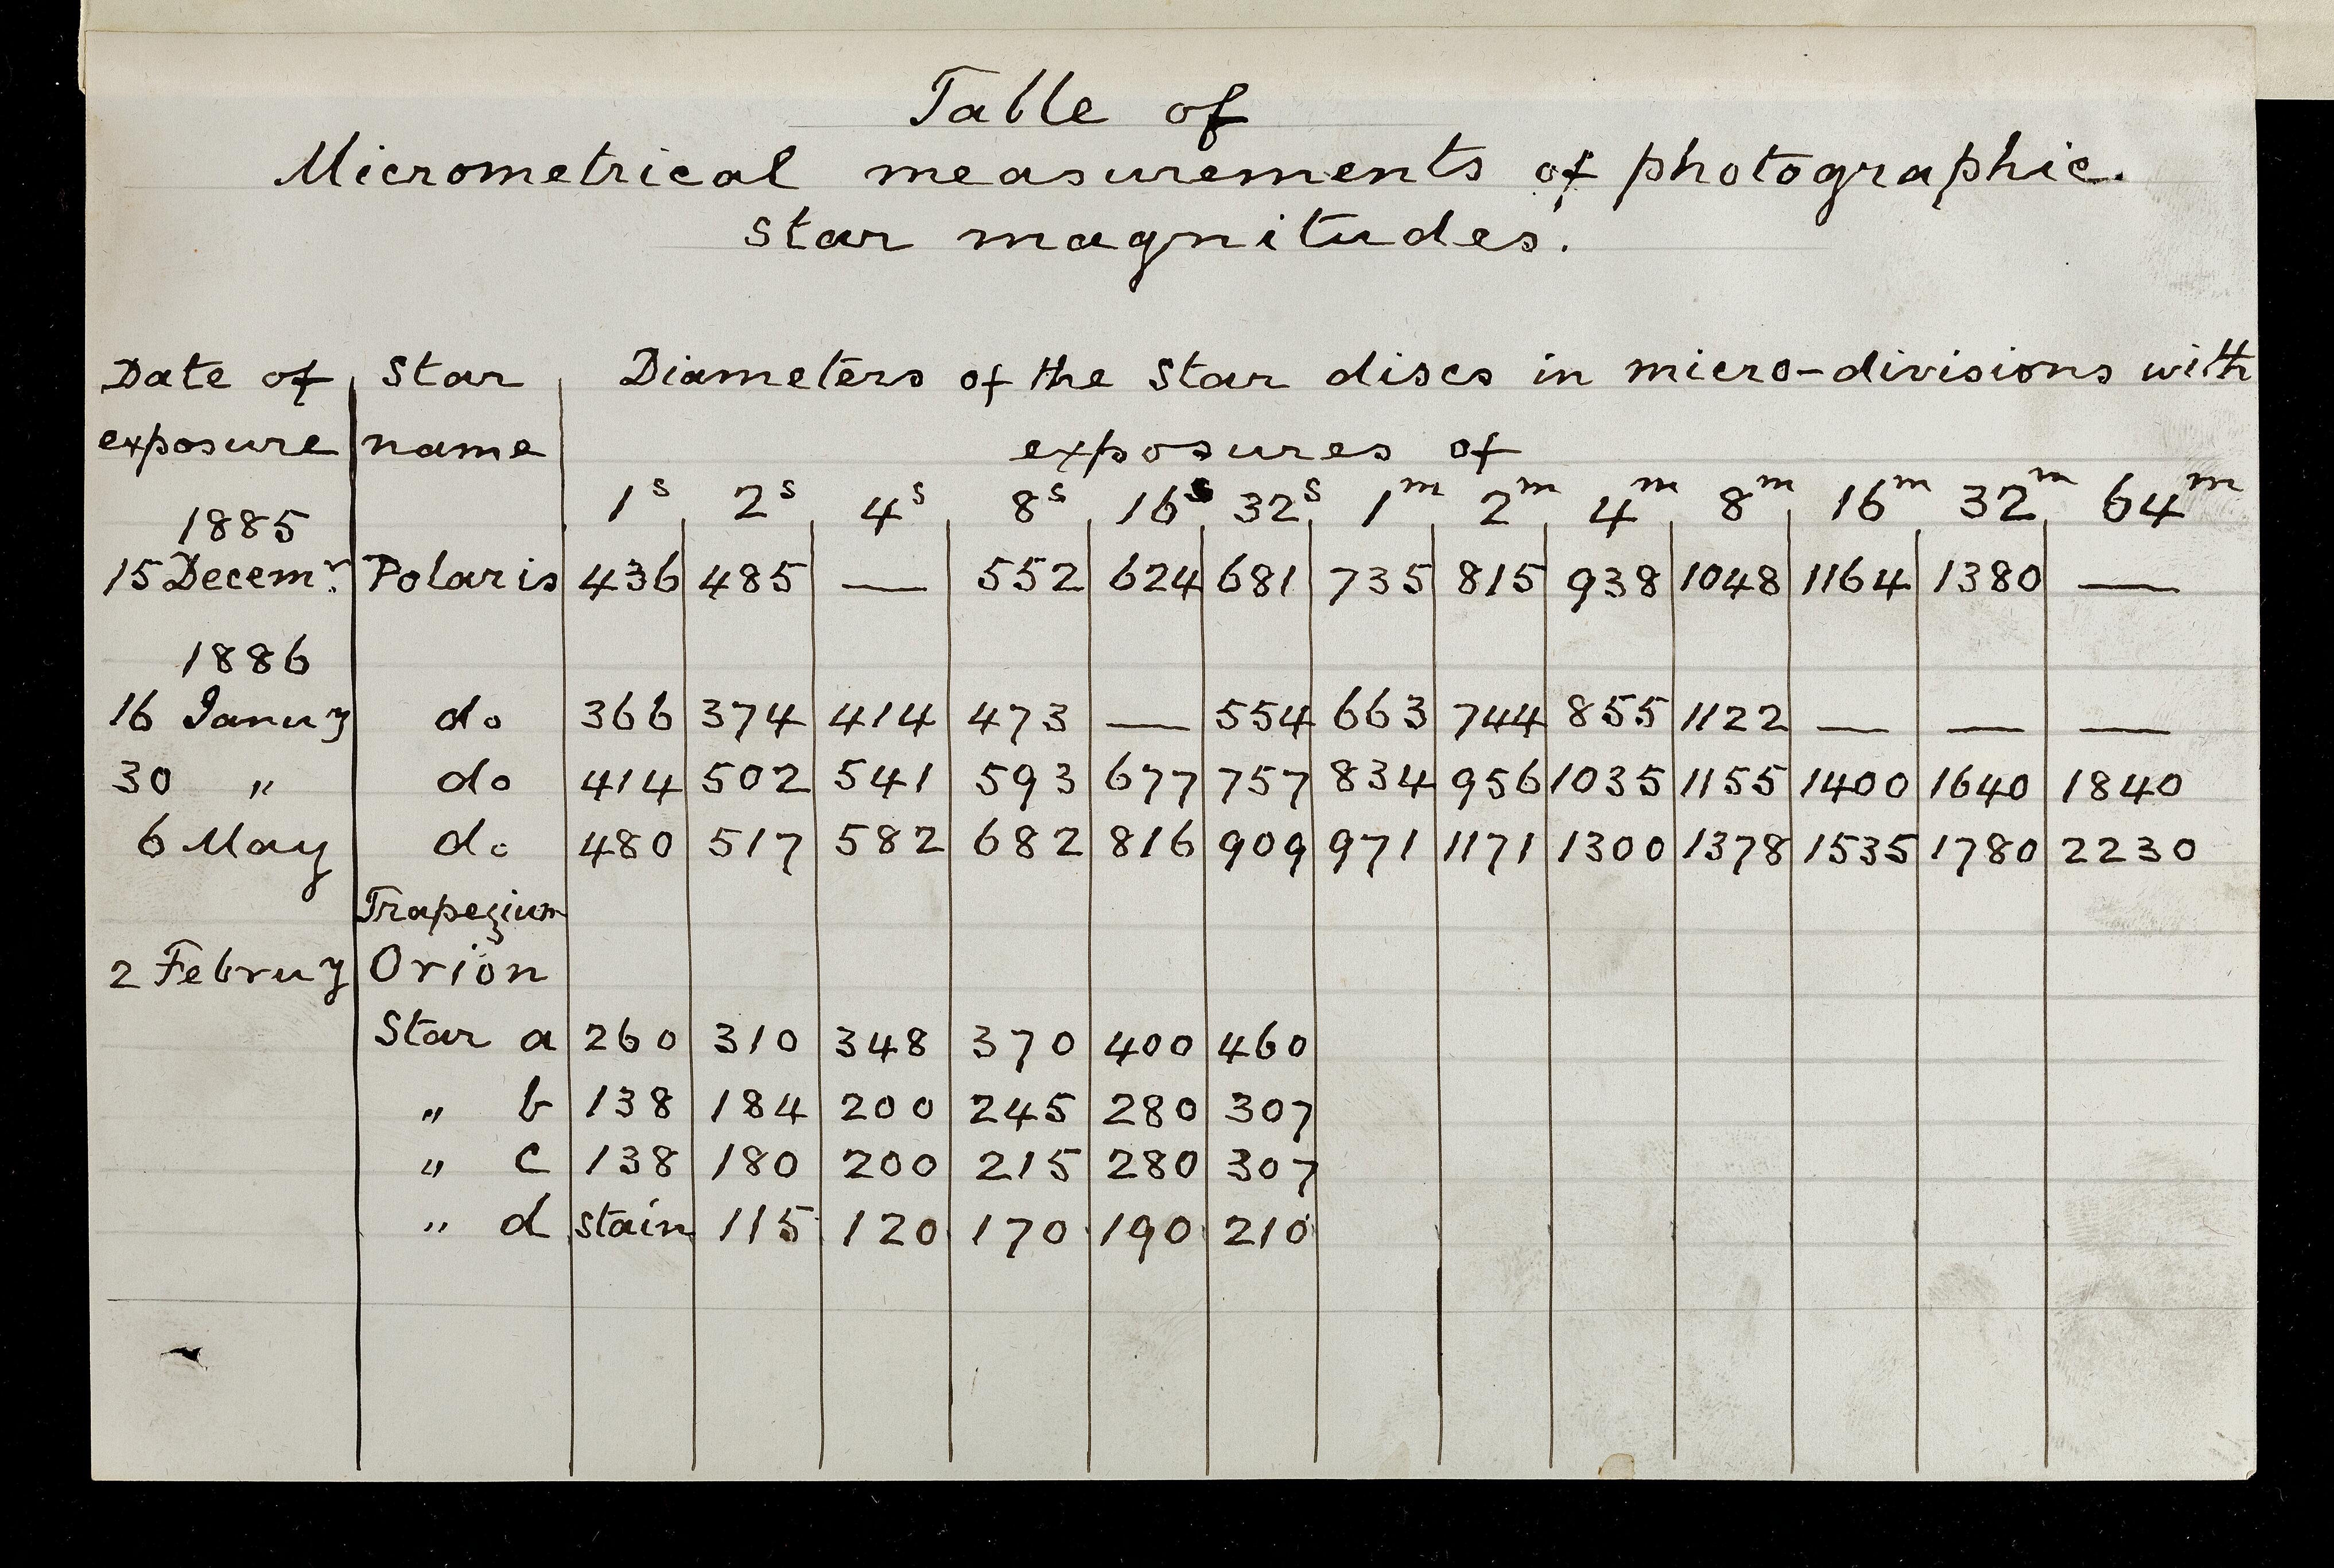 Table of
Micrometrical measurements of photographic.
star magnitudes.
Date of Star Diameters of the Star discs in micro-divisions with
exposure name exposures of
1885 1s 2s 4s 8s 16s 32s 1m 2m 4m 8m 16m 32m 64m
15 Decemr. Polaris 436 485 — 552 624 681 735 815 938 1048 1164 1380 —
1886
16 Januy do 366 374 414 473 — 554 663 744 855 1122 — — —
30 " do 414 502 541 593 677 757 834 956 1035 1155 1400 1640 1840
6 May do 480 517 582 682 816 909 971 1171 1300 1378 1535 1780 2230
Trapezium
2 Februy Orion
Star a 260 310 348 370 400 460
" b 138 184 200 245 280 307
" c 138 180 200 215 280 307
" d stain 115 120 170 190 210